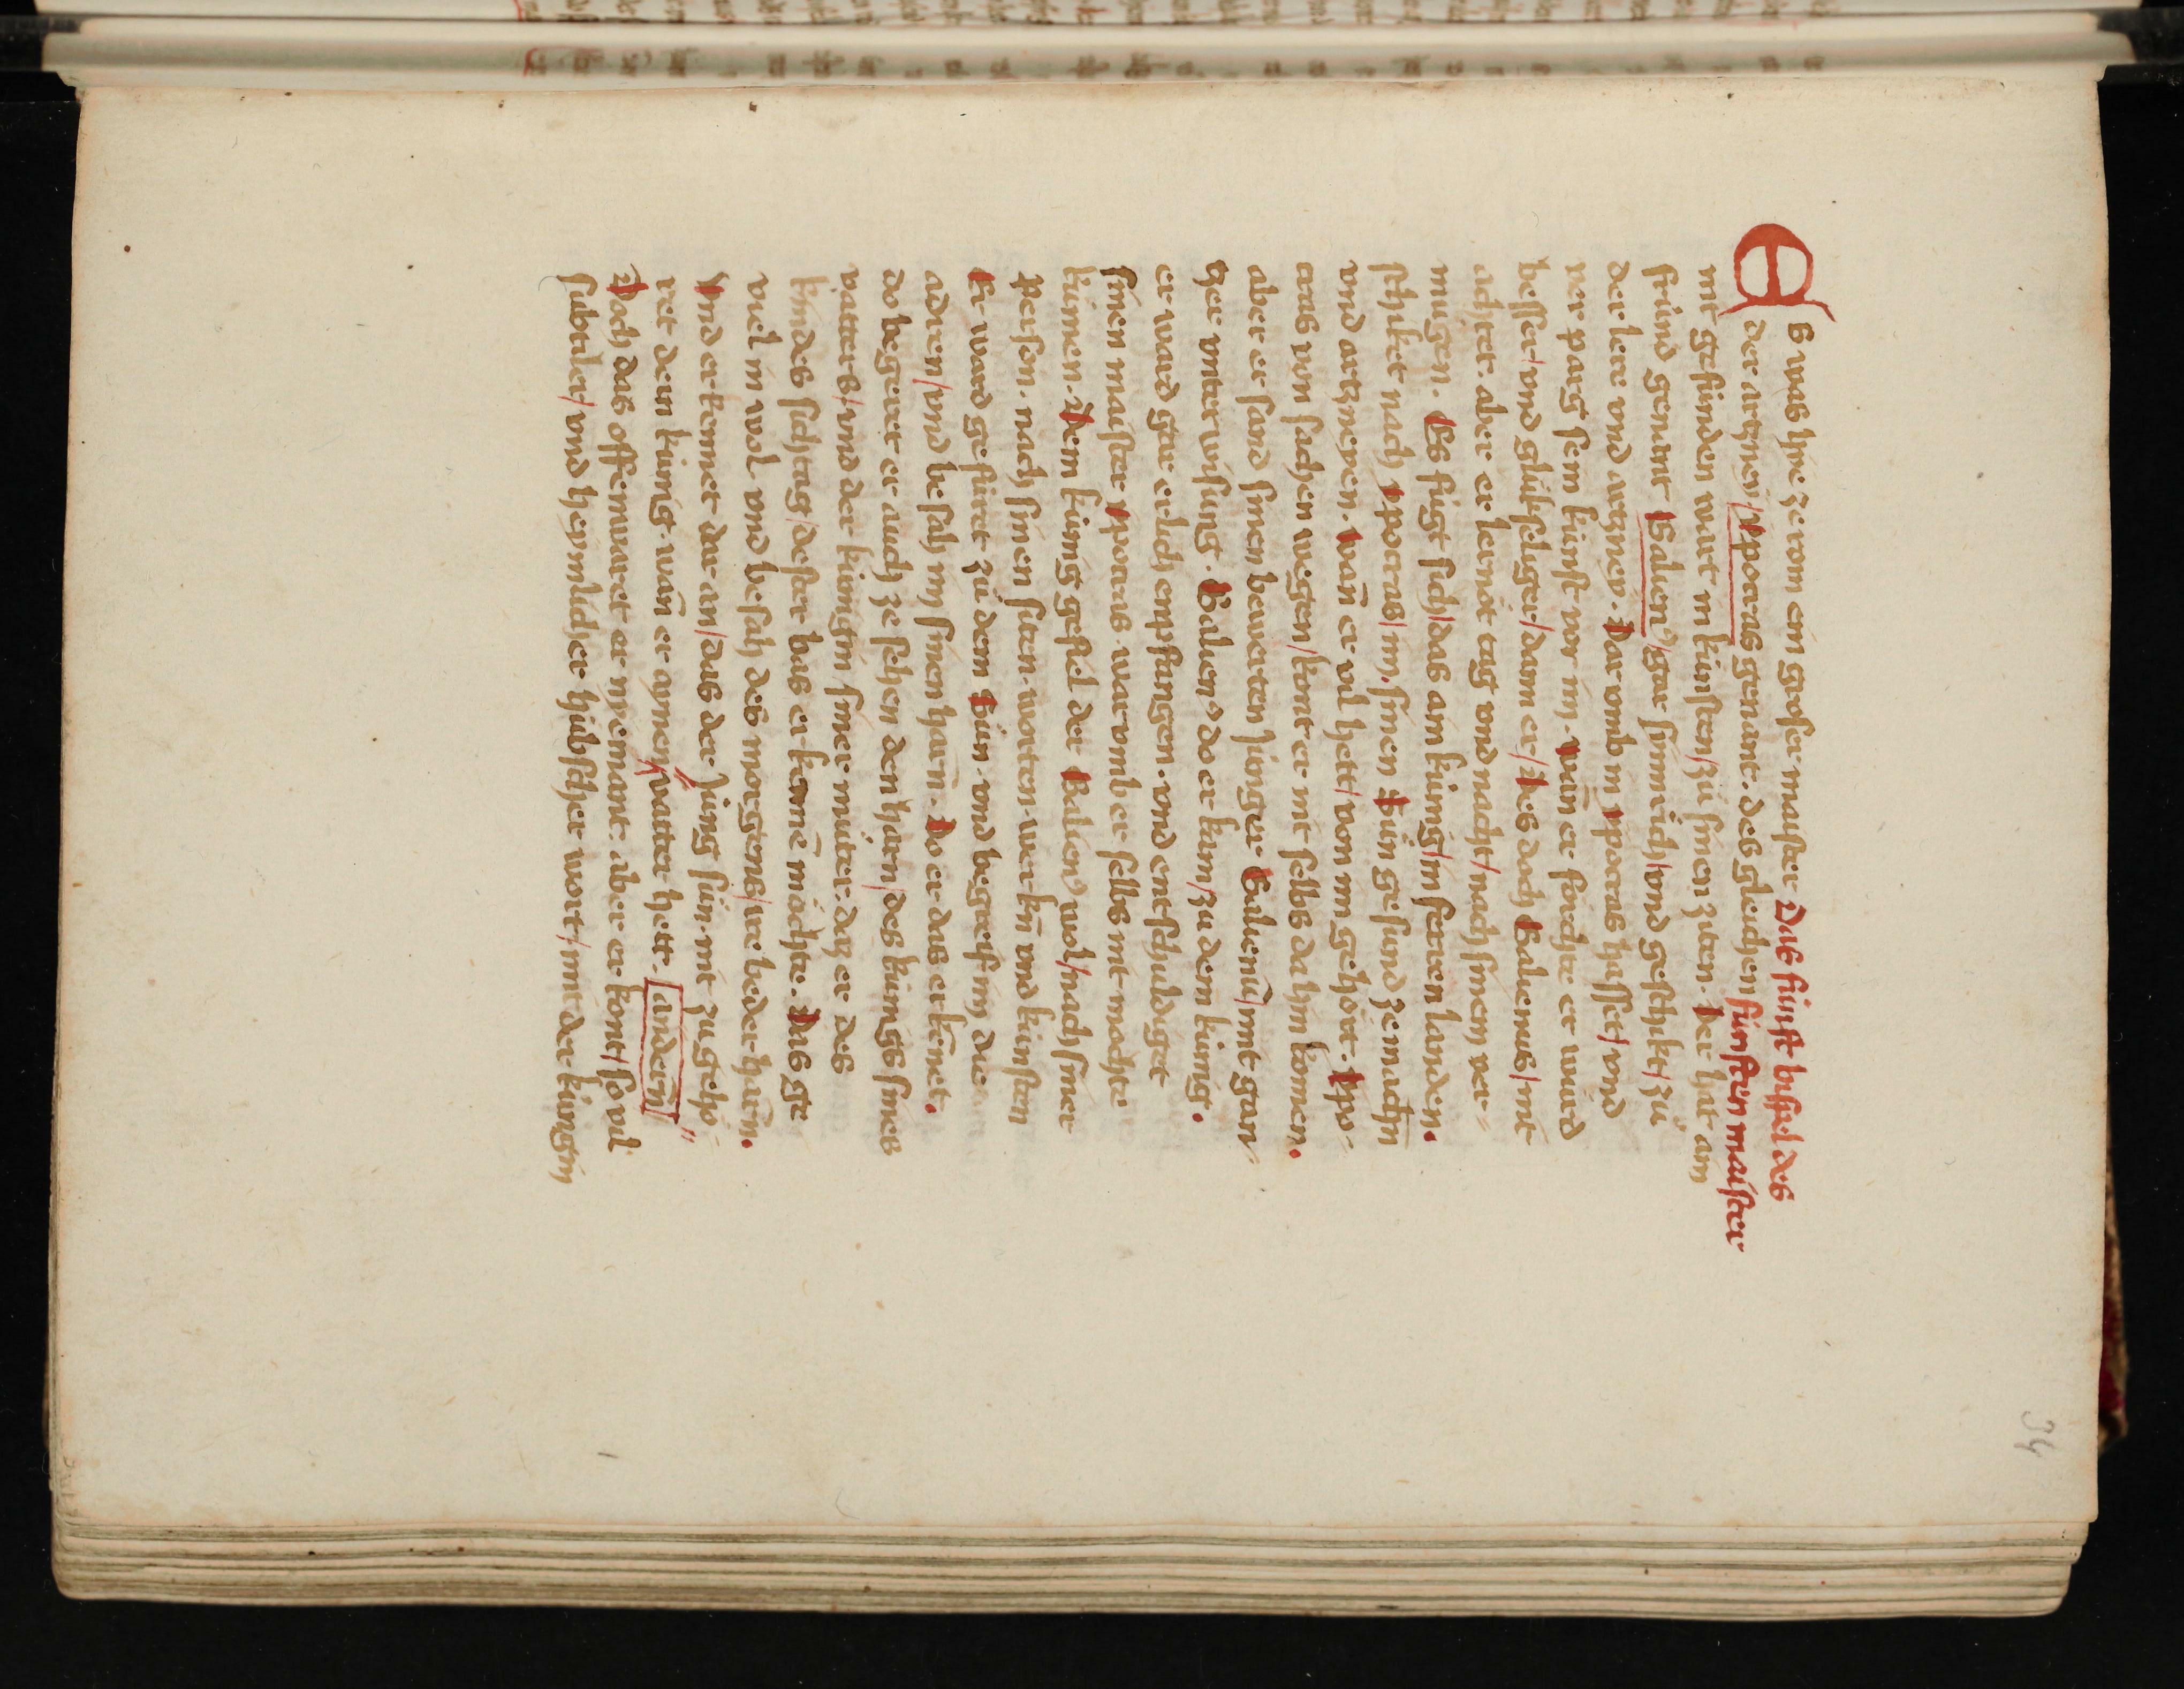 34
Es was hye ze rom ein groser maister Das fúnft bispel des
der artzney / ypocras genant. des gleichen fúnften maister
mit gefunden wart in kúnsten / zú sinen ziten. Der hat am
frúnd genant Galien9 / gar sinnrich / vnd geschikt / zů
der lere vnd artzney. Dar vmb in ypocras hasset / vnd
ver parg sein kúnst vor im. Wañ er förchte er wurd
besser / vnd glúkseliger / dann er / Des doch Galienus / nit
achtet. aber er lernot tag vnd nacht / nach sinem ver-
múgen. Es fúgt sich / das ain kúnig / in ferren landen.
schiket nach ypocras / im. sinen Sun gesund ze mach̄n
vnd artzneyen. Wañ er vil hett / von im gehört. Ypo-
cras von sachen wegen / kont er nit selbs da hin komen.
aber er sand sinen bewerten júnger Galienū / mit gan-
tzer vnterwisung. Galien9 do er kam / zu dem kúnig.
er ward gar erlich enpfangen. vnd entschuldiget
sinen maister ypocras warvmb er selbs nit mochte
kúmen. Dem kúnig gefiel der Galien9 wol / nach siner
person. nach sinen siten. worten. werkn̄ vnd kúnsten
Er ward gefúret zú dem Sun. vnd begreif im die
adren / vnd besah im sinen harn̄. Do er das erkēnet.
do begeret er auch ze sehen den harn / des kúnigs sines
vatters / vnd der kúngin siner můter. daz er des
kindes sichtag / dester bas erkennē möchte. Das ge
viel in wol vnd besah des morgens / ire beder harn̄.
Vnd erkennet dar an / das der Jung sún. nit zu gehö-
ret dem kúnig. wañ er aynen vatter hett. andern̄
Doch das offenwaret er nyemant. aber er kont / so vil
subtiler / vnd heymlicher húbscher wort / mit der kúngin